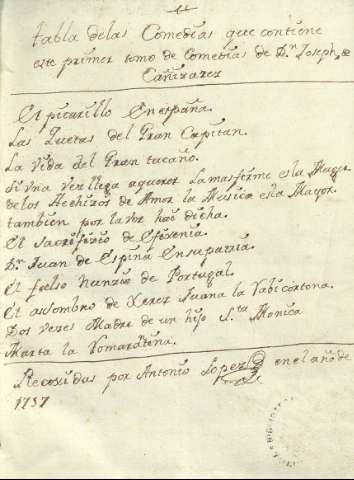 tabla delas Comedias que contiene
este primer tomo de Comedias de Dn Joseph de
Cañizares
El picarillo En españa.
Las Quetas del Gran Capitan.
La Vida del Gran tacaño.
Si una vez llega aquerer Lamas firme es la Mayor
delos Hechizos de Amor La Musica es la Mayor.
tambien por la voz hai dicha.
El sacrifizio de Efixenia.
Dn Juan de Espina Ensu patria.
El falso Nunzio de Portugal.
El asombro de Xerez Juana la Rabicortona.
Dos vezes Madre de un hijo Sta Monica
Marta la Romarantina.
Recoxidas por Antonio Lopez en el año de
1737